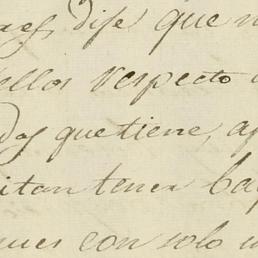 dije que n
ellos respecto
dos que tiene, a
itan tener ba
ues con solo u